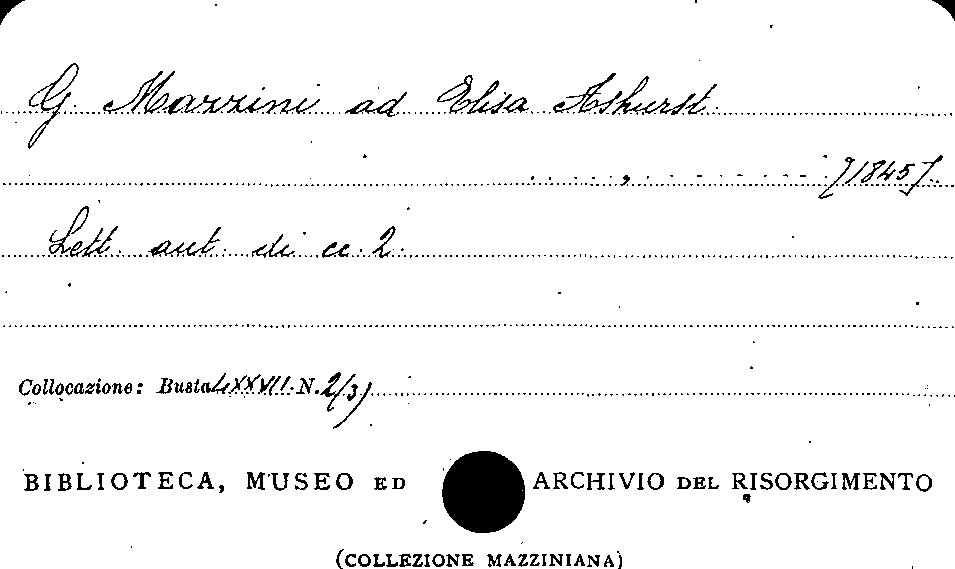 G. Mazzini ad Elisa Ashurst.
. . . . , . . . . . . . . . [1845].
Lett. aut. di cc. 2.
Collocazione: Busta LXXVII N. 2/3)
BIBLIOTECA, MUSEO ED ARCHIVIO DEL RISORGIMENTO
(COLLEZIONE MAZZINIANA)